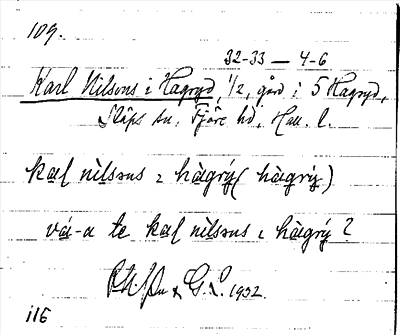 109.
32-33 — 4-6
Karl Nilsons i Hagryd, 1/2, gård i 5 Hagryd,
Släps sn, Fjäre hd, Hall. l.
kal nìlsɘns ɩ hàgrý ( hàgrý )
vá-a te kal nìlsɘns ɩ hàgrý ?
G. L. 1932.
i16